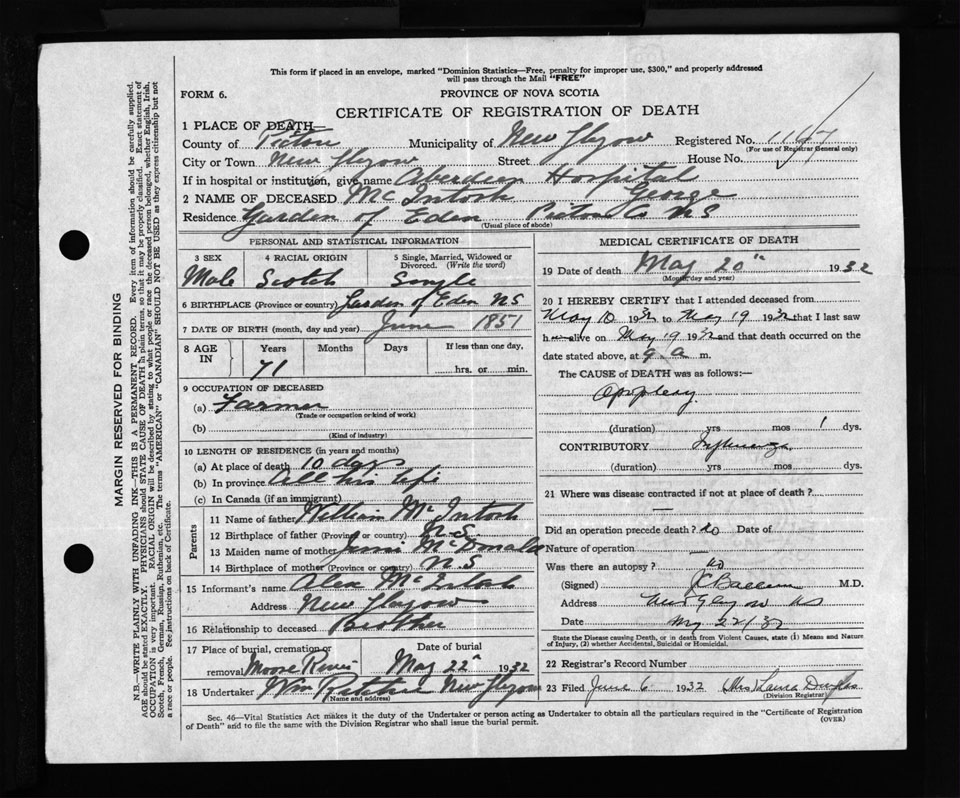 This form if placed in an envelope, marked "Dominion Statistics—Free, penalty for improper use, $300," and properly addressed
will pass through the Mail "FREE"
FORM 6. PROVINCE OF NOVA SCOTIA
CERTIFICATE OF REGISTRATION OF DEATH
1 PLACE OF DEATH
County of Pictou Municipality of New Glasgow Registered No. 1147
(For use of Registrar General only)
City or Town New Glasgow Street House No.
If in hospital or institution, give name Aberdeen Hospital
2 NAME OF DECEASED McIntosh George
Residence Garden of Eden Pictou Co NS
(Usual place of abode)
PERSONAL AND STATISTICAL INFORMATION
3 SEX 4 RACIAL ORIGIN 5 Single, Married, Widowed or
Divorced. (Write the word)
Male Scotch Single
6 BIRTHPLACE (Province or country) Garden of Eden NS
7 DATE OF BIRTH (month, day and year) June 1851
8 AGE IN Years Months Days If less than one day,
71 hrs. or min.
9 OCCUPATION OF DECEASED
(a) Farmer
(Trade or occupation or kind of work)
(b)
(Kind of industry)
10 LENGTH OF RESIDENCE (in years and months)
(a) At place of death 10 days
(b) In province All his life
(c) In Canada (if an immigrant)
Parents
11 Name of father William McIntosh
12 Birthplace of father (Province or country) N.S
13 Maiden name of mother Jessie McDonald
14 Birthplace of mother (Province or country) N.S
15 Informant's name Alex McIntosh
Address New Glasgow
16 Relationship to deceased Brother
17 Place of burial, cremation or Date of burial
removal Moose River May 22ⁿ 1932
18 Undertaker Wm Ritchie New Glasgow
(Name and address)
MEDICAL CERTIFICATE OF DEATH
19 Date of death May 20th 1932
(Month, day and year)
20 I HEREBY CERTIFY that I attended deceased from
May 10 1932 to May 19 1932 that I last saw
h im alive on May 19 1932 and that death occurred on the
date stated above, at 9 a m.
The CAUSE of DEATH was as follows:—
Apoplexy
(duration) yrs mos 1 dys.
CONTRIBUTORY Influenza
(duration) yrs mos dys.
21 Where was disease contracted if not at place of death?
—
Did an operation precede death? No Date of
Nature of operation —
Was there an autopsy? No
(Signed) M.D.
Address New Glasgow NS
Date May 22/32
State the Disease causing Death, or in death from Violent Causes, state (1) Means and Nature
of Injury, (2) whether Accidental, Suicidal or Homicidal.
22 Registrar's Record Number
23 Filed June 6 1932 Mrs Laura
(Division Registrar)
Sec. 46—Vital Statistics Act makes it the duty of the Undertaker or person acting as Undertaker to obtain all the particulars required in the "Certificate of Registration
of Death" and to file the same with the Division Registrar who shall issue the burial permit. (OVER)
MARGIN RESERVED FOR BINDING
N.B.—WRITE PLAINLY WITH UNFADING INK—THIS IS A PERMANENT RECORD. Every item of information should be carefully supplied.
AGE should be stated EXACTLY. PHYSICIANS should STATE CAUSE OF DEATH in plain terms, so that it may be properly classified. Exact statement of
OCCUPATION is very important. RACIAL ORIGIN will be described by stating to what people or race the deceased person belonged, whether English, Irish,
Scotch, French, German, Russian, Ruthenian, etc. The terms "AMERICAN" or "CANADIAN" SHOULD NOT BE USED as they express citizenship but not
a race or people. See instructions on back of Certificate.